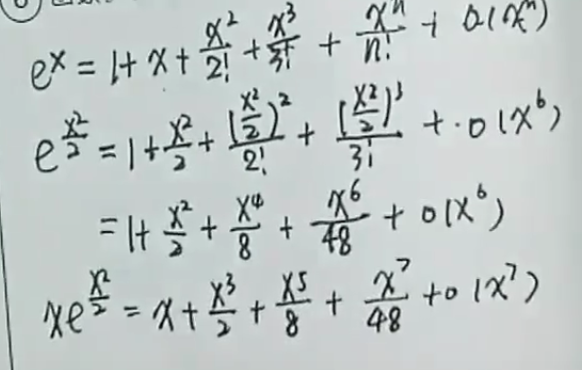 e^x = 1 + x + x²/2! + x³/3! + x^n/n! + o(x^n)
e^(x²/2) = 1 + x²/2 + (x²/2)²/2! + (x²/2)³/3! + · o(x⁶)
= 1 + x²/2 + x⁴/8 + x⁶/48 + o(x⁶)
xe^(x²/2) = x + x³/2 + x⁵/8 + x⁷/48 + o(x⁷)